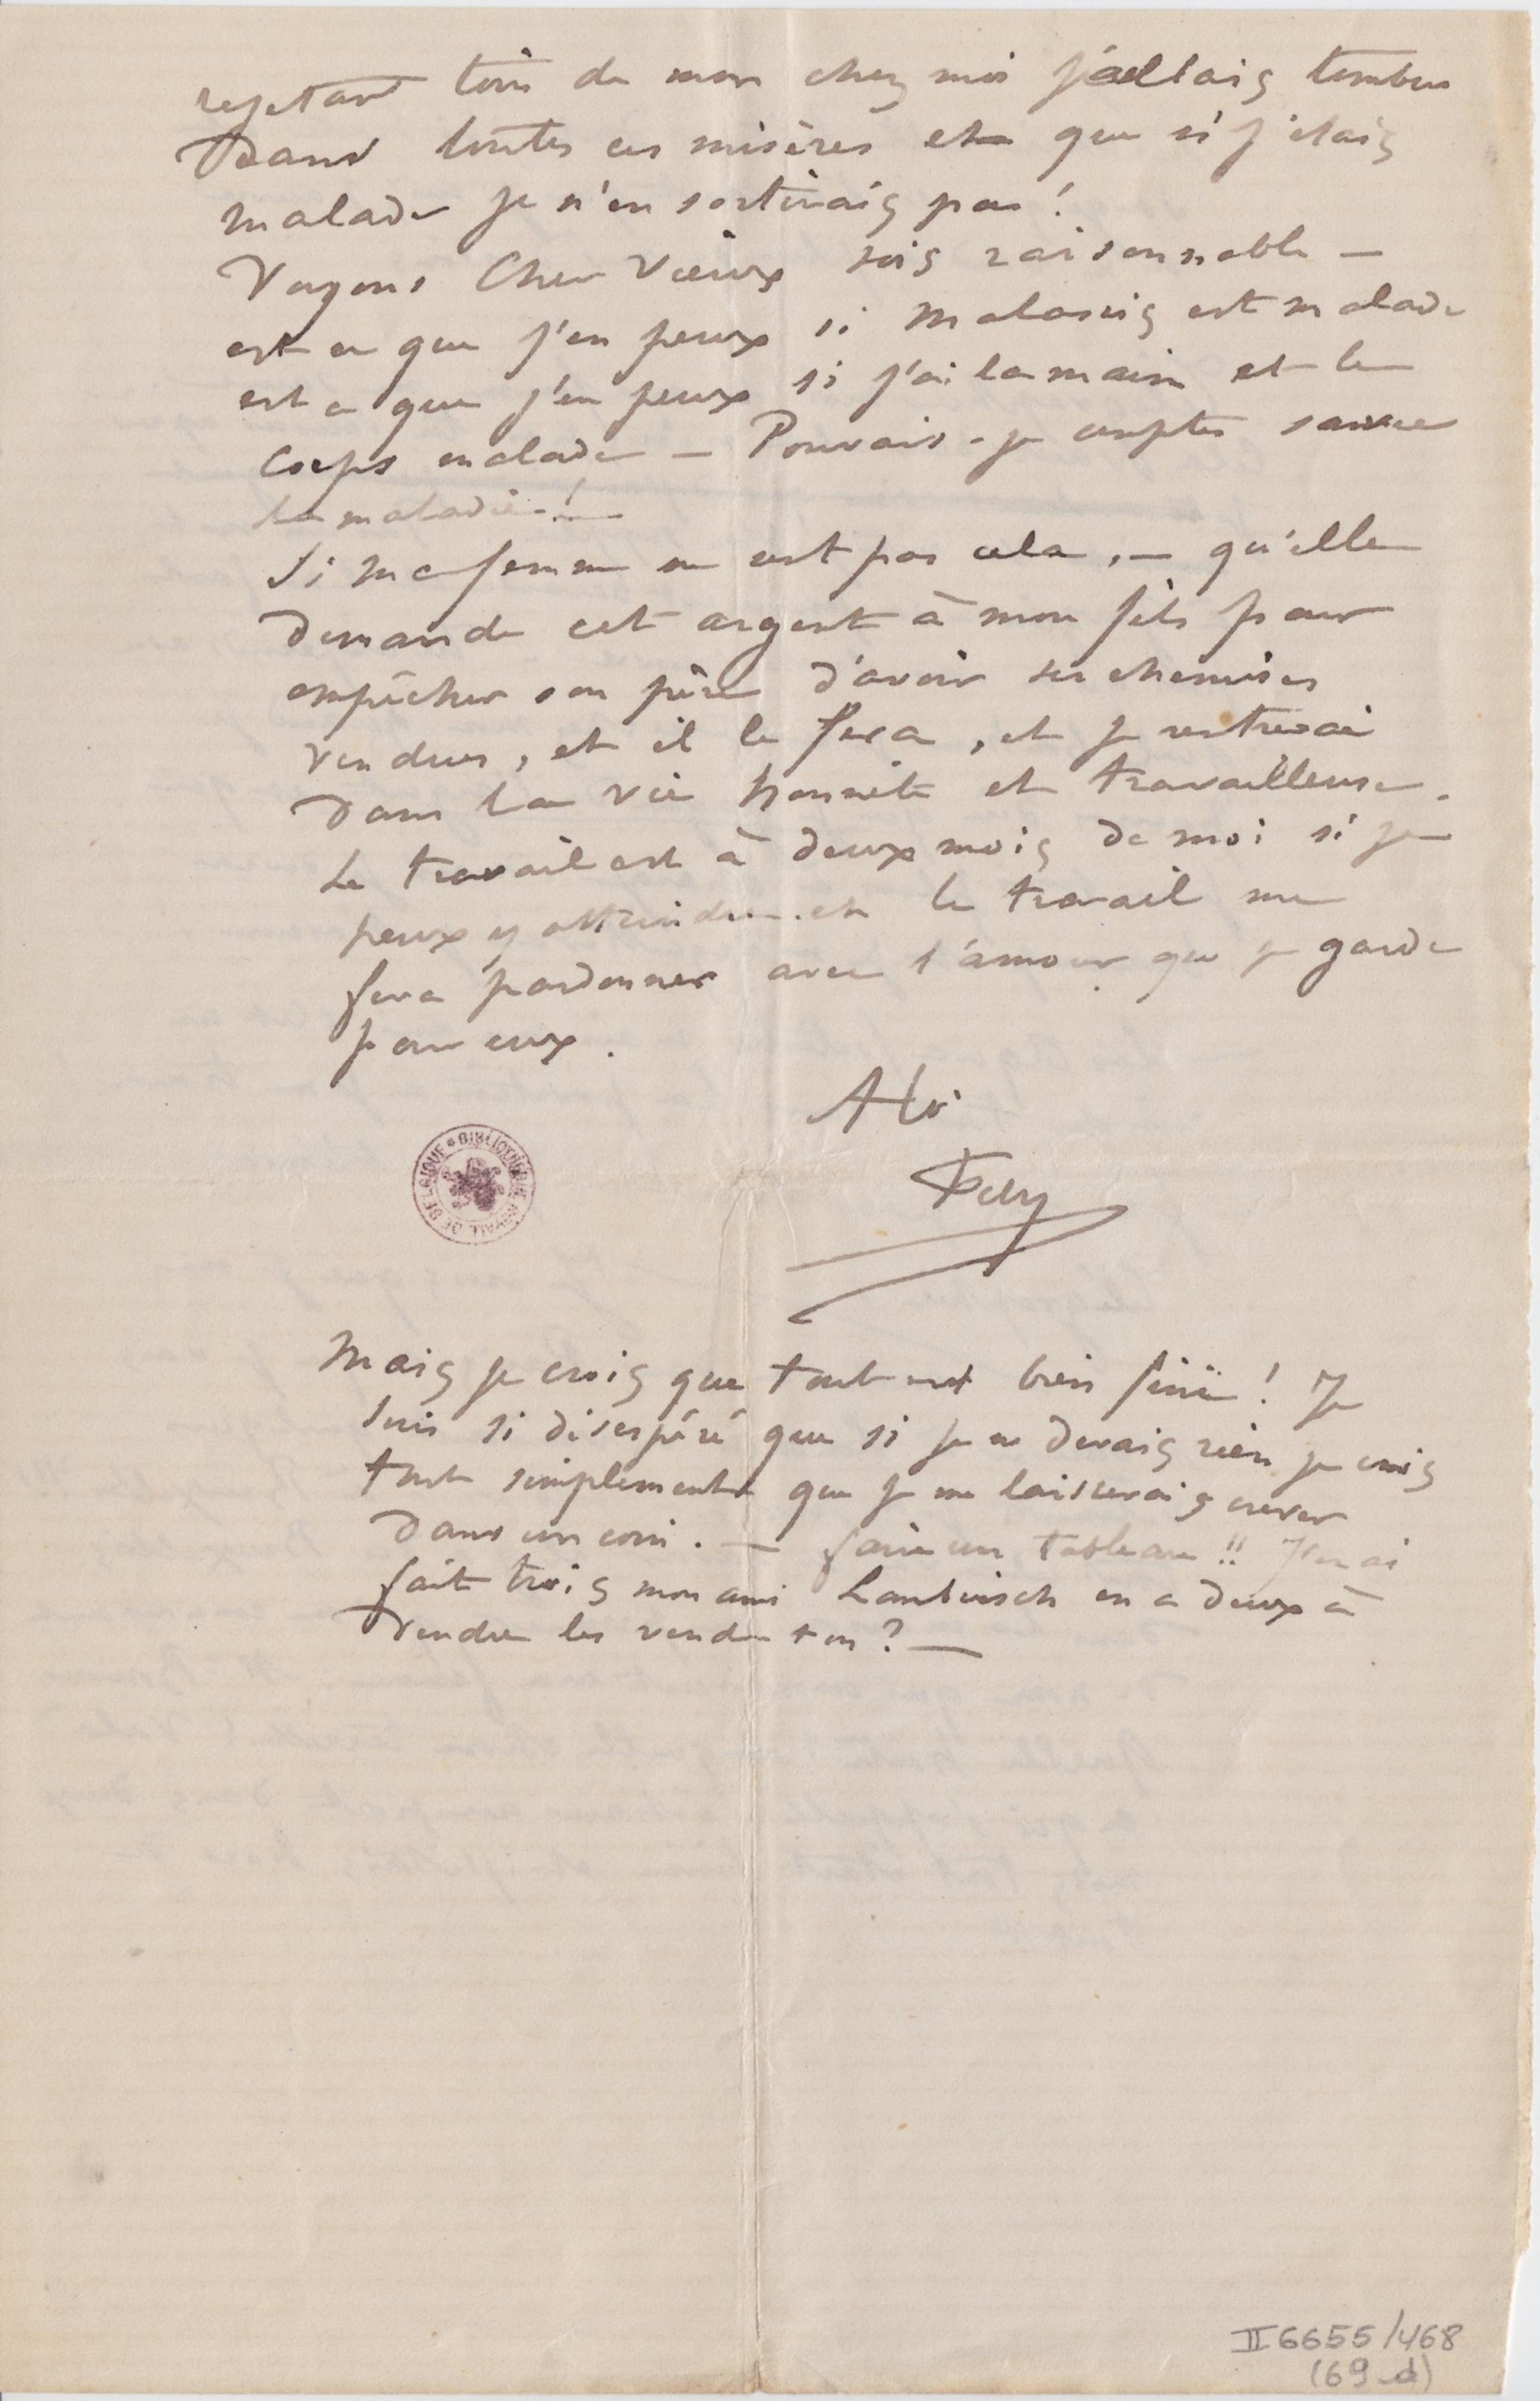 rejetant loin de mon chez moi j'allais tomber
dans toutes ces misères et que si j'étais
malade je n'en sortirais pas !
Voyons Cher Vieux sois raisonnable —
est ce que j'en peux si Malassis est malade
est ce que j'en peux si j'ai la main et le
corps malade — Pouvais-je compter sans
la maladie !
Si ma femme ne veut pas cela, — qu'elle
demande cet argent à mon fils pour
empêcher son père d'avoir ses chemises
vendues, et il le fera, et je rentrerai
dans la vie honnête et travailleuse.
Le travail est à deux mois de moi si je
peux y atteindre et le travail me
fera pardonner avec l'amour que je garde
pour eux.
A toi
Fély
Mais je crois que tout est bien fini ! Je
suis si désespéré que si je ne devais rien je crois
tout simplement que je me laisserais crever
dans un coin. — faire un tableau !! J'en ai
fait trois mon ami en a deux à
vendre les vend-on ? —
BIBLIOTHEQUE ROYALE DE BELGIQUE
II 6655/468
(69_d)